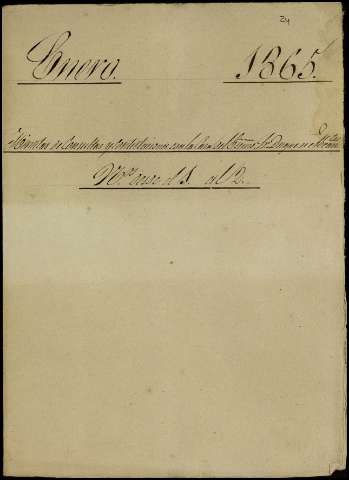 24
Enero. 1865.
Minutas de Consultas y Contestaciones con la Casa del Excmo. Sr. Duque de
Nos. desde el 1. al 2.